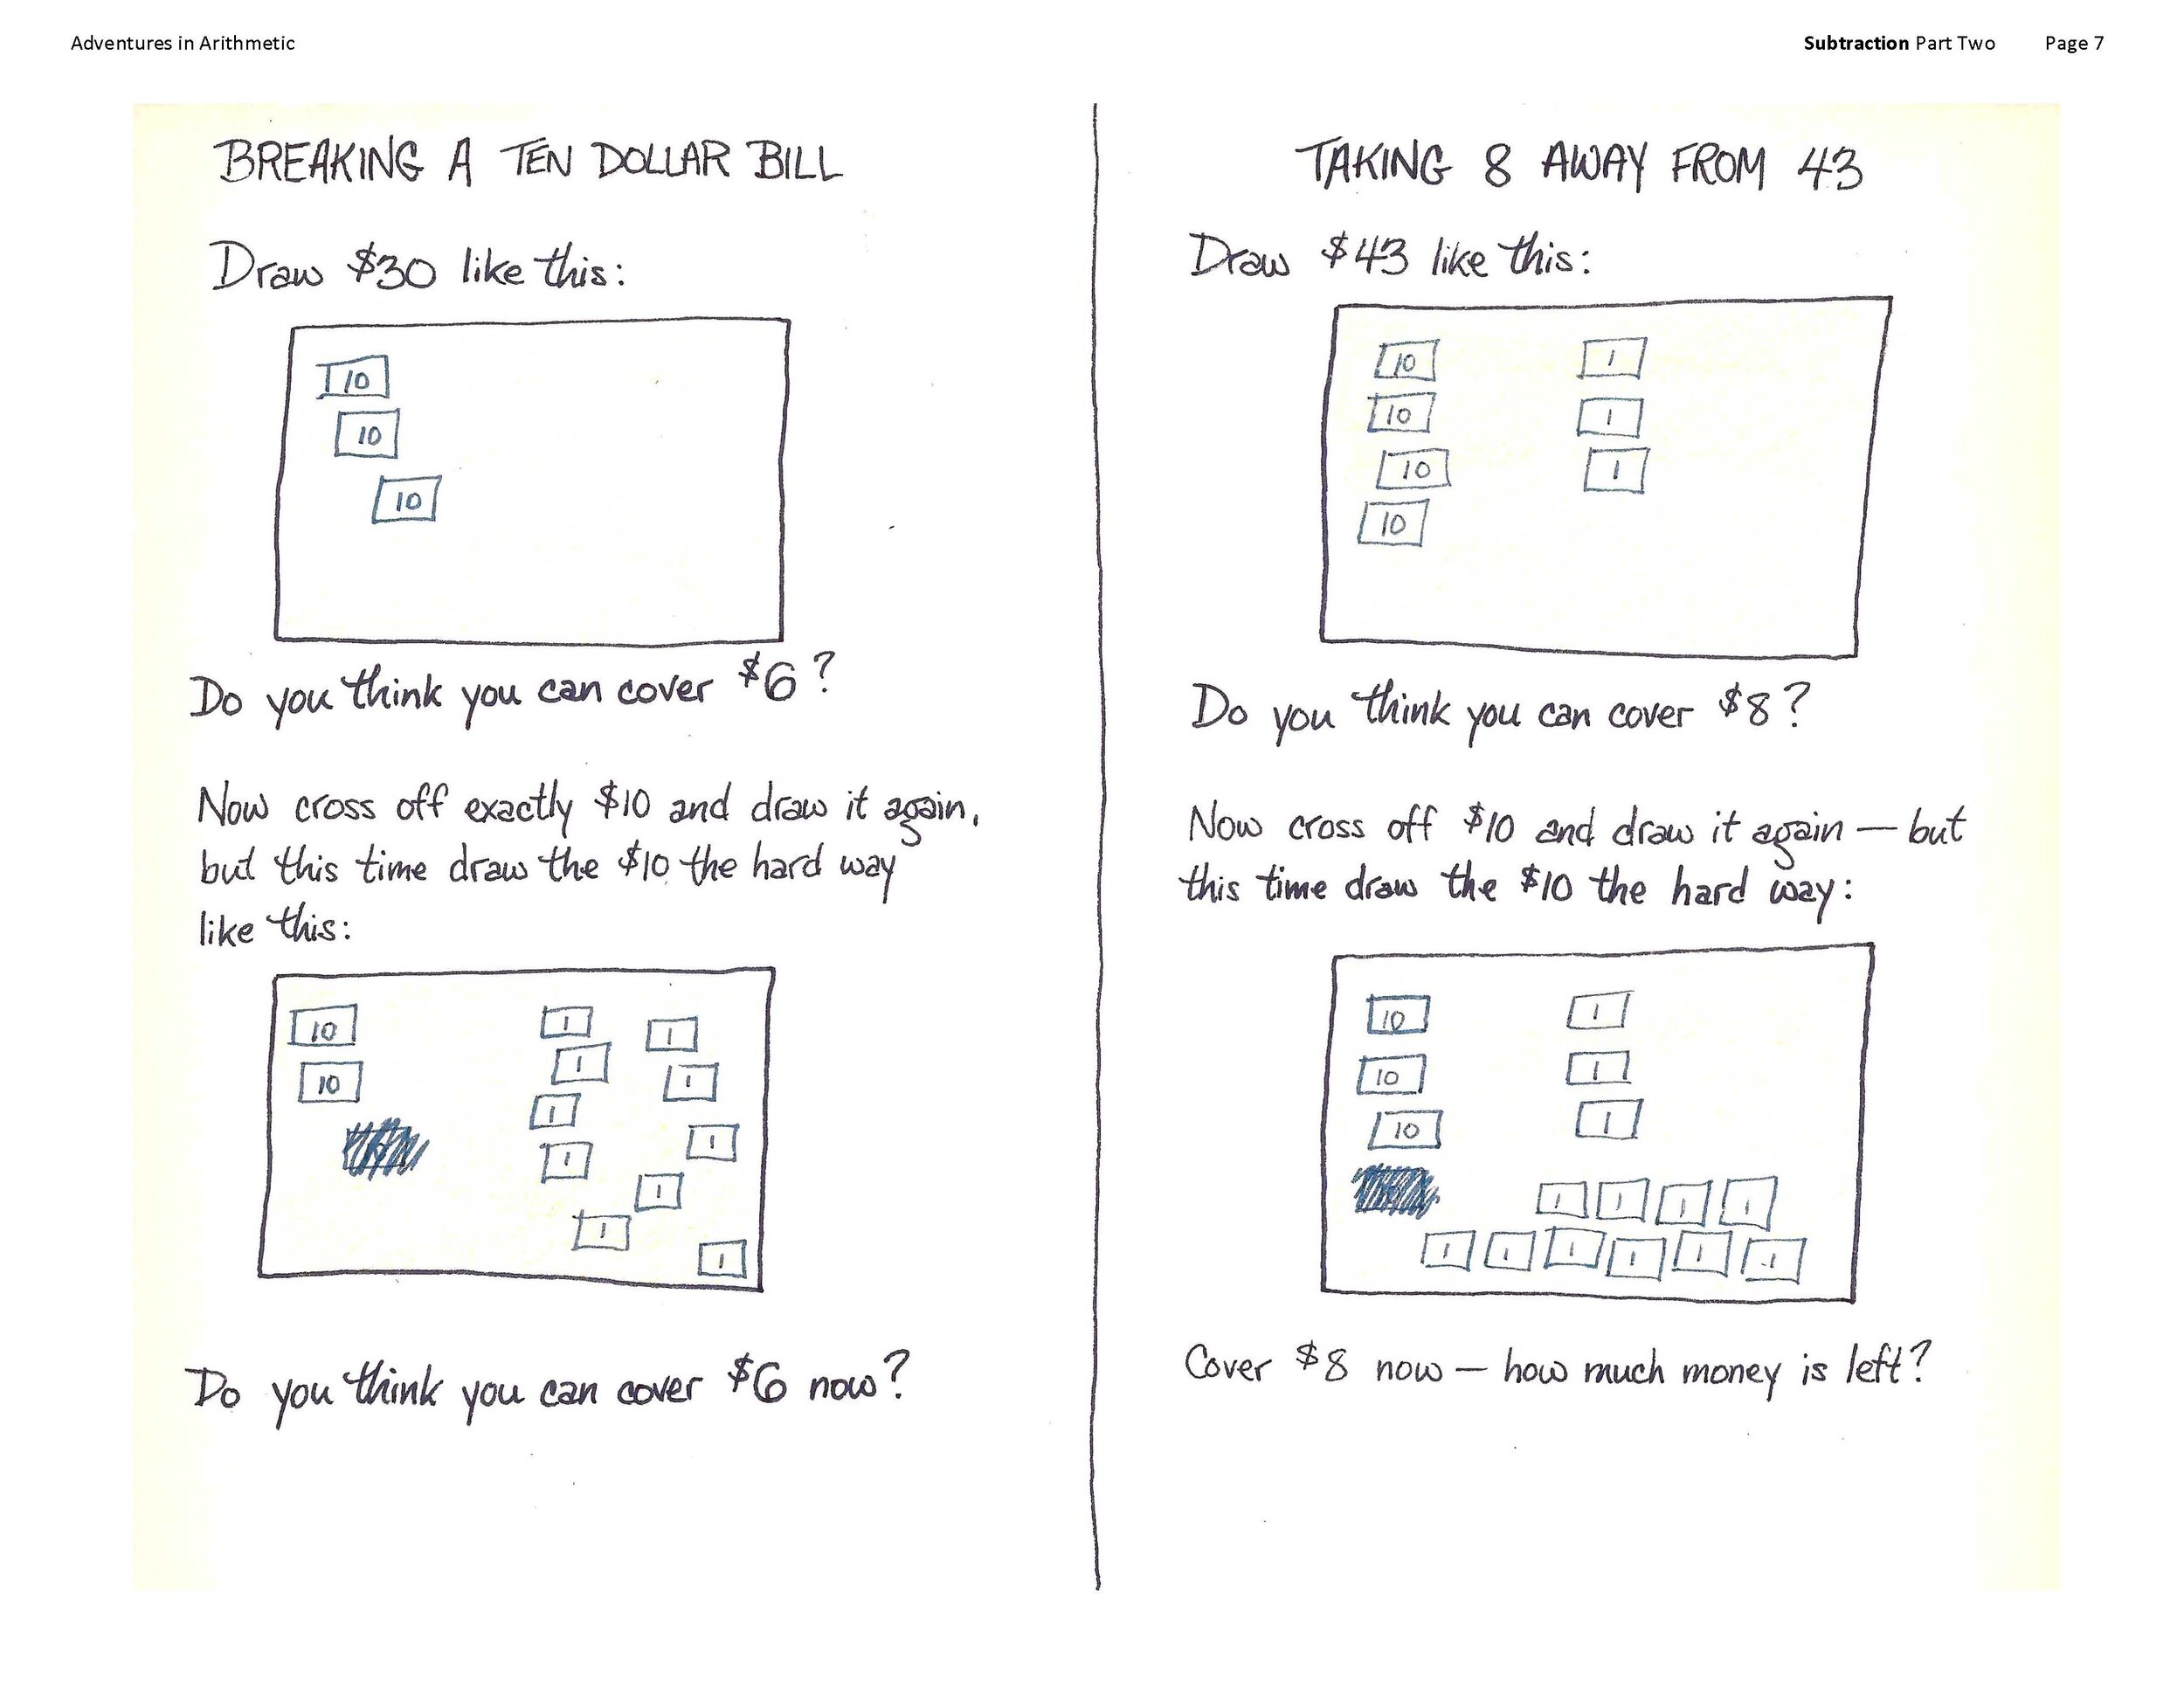 Adventures in Arithmetic
Subtraction Part Two Page 7
BREAKING A TEN DOLLAR BILL
Draw $30 like this:
10
10
10
Do you think you can cover $6?
Now cross off exactly $10 and draw it again,
but this time draw the $10 the hard way
like this:
10 1 1
10 1 1
1
1 1
1
1
1
Do you think you can cover $6 now?
TAKING 8 AWAY FROM 43
Draw $43 like this:
10 1
10 1
10 1
10
Do you think you can cover $8?
Now cross off $10 and draw it again — but
this time draw the $10 the hard way:
10 1
10 1
10 1
1 1 1 1
1 1 1 1 1 1
Cover $8 now — how much money is left?